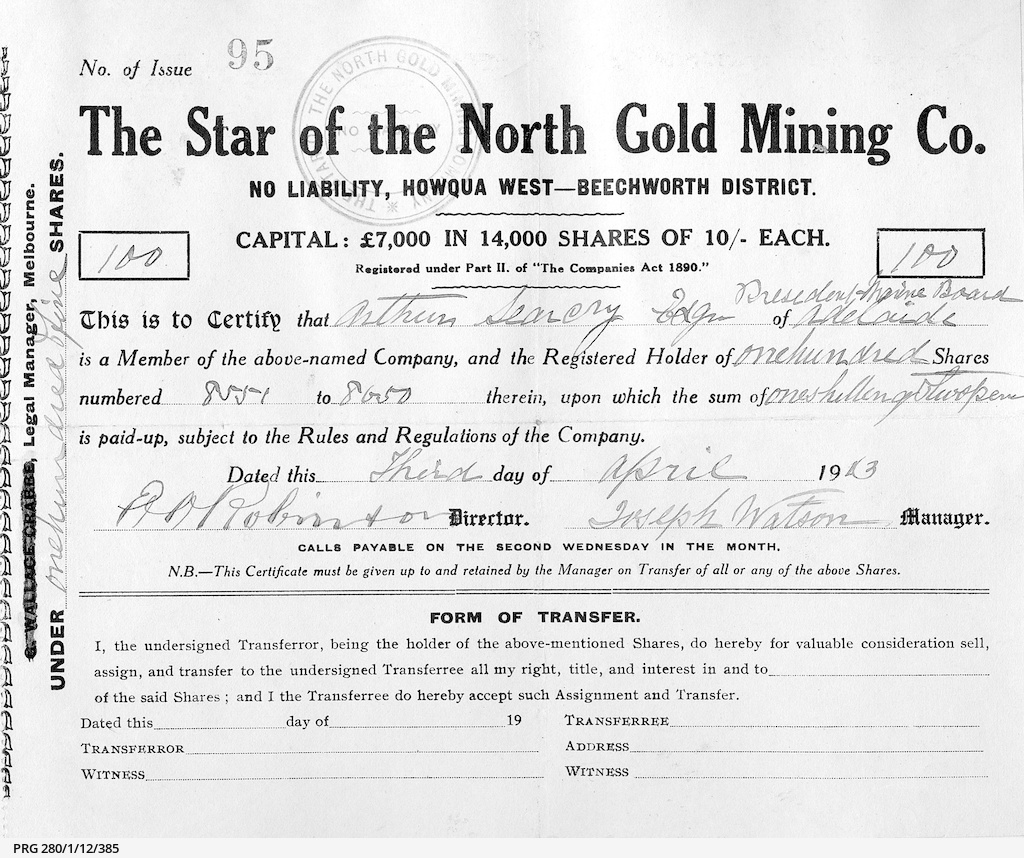 No. of Issue 95
THE STAR OF THE NORTH GOLD MINING COMPANY
NO LIABILITY
The Star of the North Gold Mining Co.
NO LIABILITY, HOWQUA WEST—BEECHWORTH DISTRICT.
CAPITAL: £7,000 IN 14,000 SHARES OF 10/- EACH.
100
100
Registered under Part II. of "The Companies Act 1890."
President Marine Board
This is to Certify that Arthur Searcey Esqr of Adelaide
is a Member of the above-named Company, and the Registered Holder of one hundred Shares
numbered 8551 to 8650 therein, upon which the sum of one shilling & twopence
is paid-up, subject to the Rules and Regulations of the Company.
Dated this Third day of April 1913
Robinson Director. Joseph Watson Manager.
CALLS PAYABLE ON THE SECOND WEDNESDAY IN THE MONTH.
N.B.—This Certificate must be given up to and retained by the Manager on Transfer of all or any of the above Shares.
FORM OF TRANSFER.
I, the undersigned Transferror, being the holder of the above-mentioned Shares, do hereby for valuable consideration sell,
assign, and transfer to the undersigned Transferree all my right, title, and interest in and to
of the said Shares; and I the Transferree do hereby accept such Assignment and Transfer.
Dated this day of 19 TRANSFERREE
TRANSFERROR ADDRESS
WITNESS WITNESS
G. WALLACE CRABBE, Legal Manager, Melbourne.
UNDER one hundred & nine SHARES.
PRG 280/1/12/385